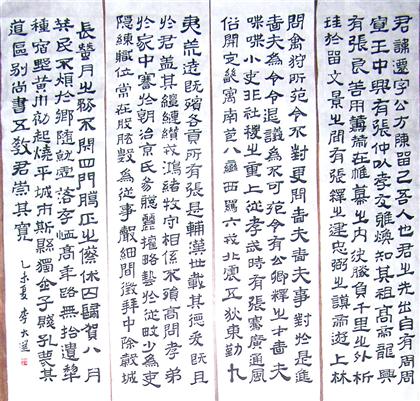 君諱遷字公方陳留己吾人也君之先出自有周周
宣王中興有張仲以孝友雅煥知其祖高帝龍興
有張良善用籌策在帷幕之內決勝負千里之外析
珪於留文景之間有張釋之建忠弼之謨帝遊上林
問禽狩所苑令不對更問嗇夫嗇夫事對於是進
嗇夫為令令退議為不可苑令有公卿之才嗇夫
喋喋小吏非社稷之重上從孝武時有張騫廣通風
俗開定畿寓南苞八蠻西羈六戎北震五狄東勤九
夷荒遠既殯各貢所有張是輔漢世載其德爰既且
於君蓋其繵縺纘戎鴻緒牧守相係不殞高問孝弟
於家中謇於朝治京氏易聰麗權略藝於從畋少為吏
隱練職位常在股肱數為從事聲細聞徵拜中除穀城
長蠶月之務不閉四門臘正之僚休囚歸賀八月
其民不煩於鄉隨就虛落存恤高年路無拾遺犁
種宿野黃巾初起燒平城市斯縣獨全子賤孔蔑其
道區別尚書五教君崇其寬 乙未夏 李大